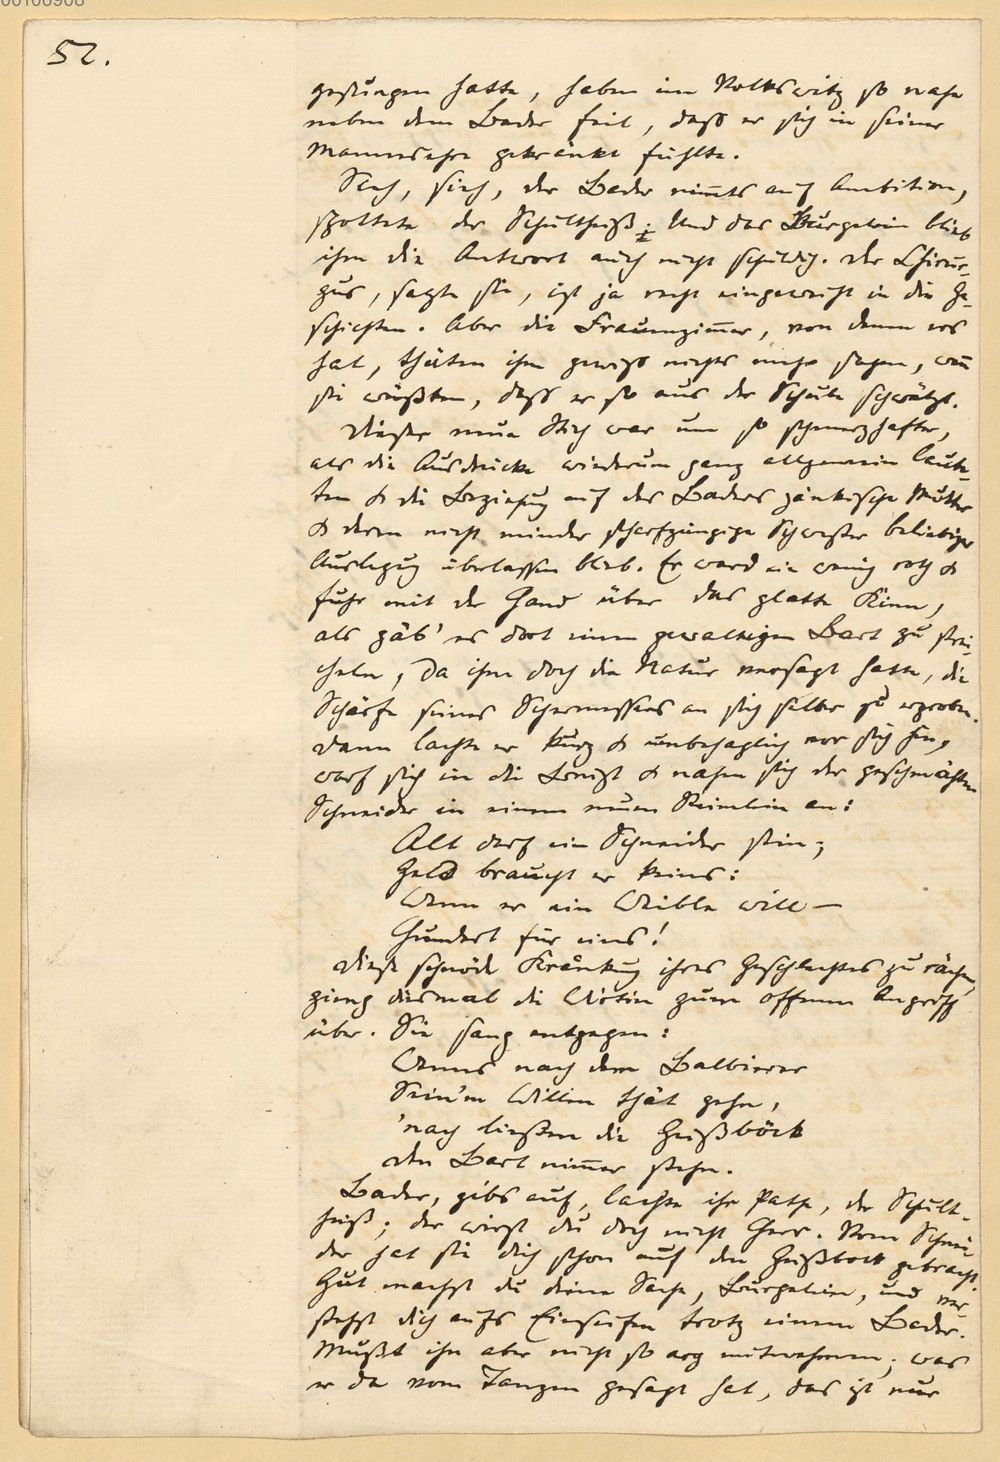 00106908
52.
gesungen hatte, haben im Volkswitz so nahe
neben dem Bader feil, dass er sich in seiner
Mannesehre gekränkt fühlte.
Seht, seht, der Bader nimts auf Ambition,
spottete der Schultheiß; Und das Burgelein blieb
ihm die Antwort auch nicht schuldig. Der Chirur-
gus, sagte sie, ist ja nicht eingeweiht in die Ge-
schichten. Aber die Frauenzimmer, von denen ers
hat, thäten ihm gewiss nichts mehr sagen, wen
sie wüßten, dass er so aus der Schule schwätzt.
Dieser neue Stich war um so schmerzhafter,
als die Ausdrücke wiederum ganz allgemein laute-
ten & die Beziehung auf des Baders zänkische Mutter
& deren nicht minder scharfzüngige Schwester beliebiger
Auslegung überlassen blieb. Er ward ein wenig roth &
fuhr mit der Hand über das glatte Kinn,
als gäb' es dort einen gewaltigen Bart zu strei-
cheln, da ihm doch die Natur versagt hatte, die
Schärfe seines Schermessers an sich selber zu erproben.
Dann lachte er kurz & unbehaglich vor sich hin,
warf sich in die Brust & nahm sich des geschmähten
Schneiders in einem neuen Reimlein an:
Alt darf ein Schneider sein;
Geld braucht er keins:
Wenn er ein Weible will —
Hundert für eins!
Diese schnöde Kränkung ihres Geschlechtes zu rächen,
gieng diesmal die Wirtin zum offenen Angriff
über. Sie sang entgegen:
Wenns nach dem Balbierer
Sein'm Willen thät gehn,
'nach ließen die Geißböck
Den Bart nimer stehn.
Bader, gibs auf, lachte ihr Pathe, der Schult-
heiß; der wirst du doch nicht Herr. Vom Schnei-
der hat sie dich schon auf den Geißbock gebracht.
Gut machst du deine Sache, Burgelein, und ver-
stehst dich aufs Einseifen trotz einem Bader.
Mußt ihn aber nicht so arg mitnehmen; was
er da vom Tanzen gesagt hat, das ist nur